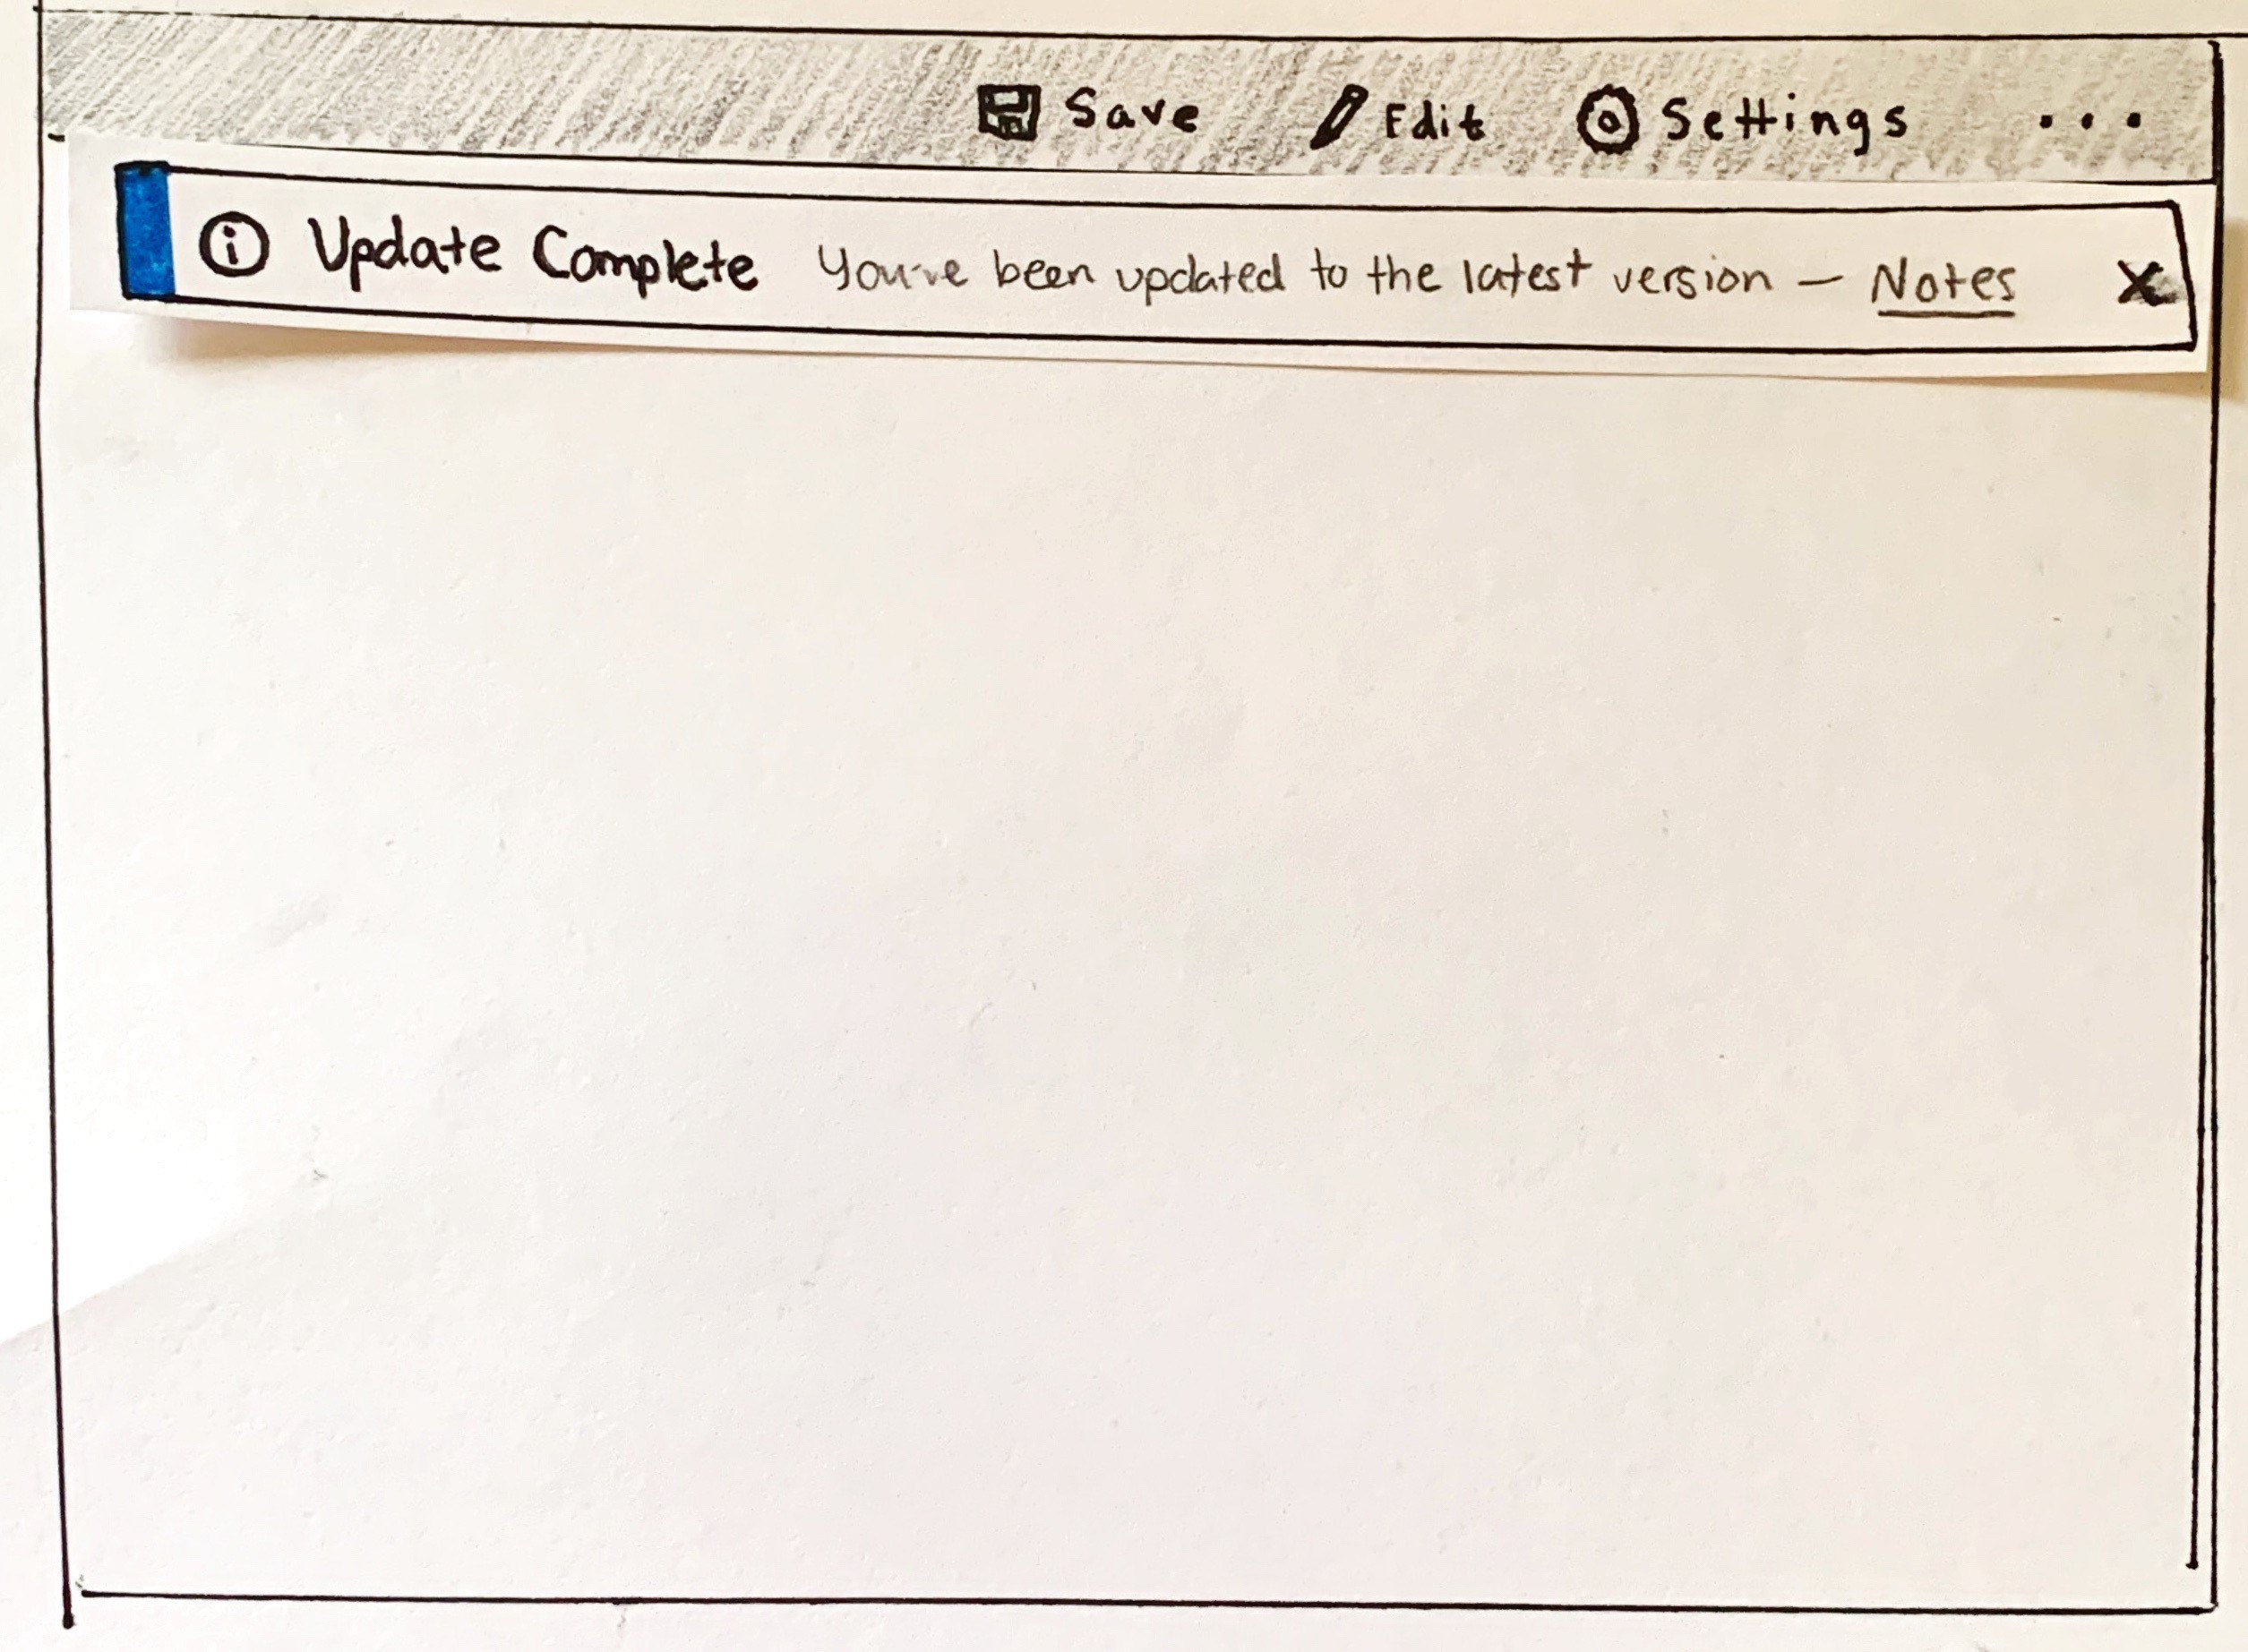 Save Edit Settings ...
i Update Complete You've been updated to the latest version – Notes X